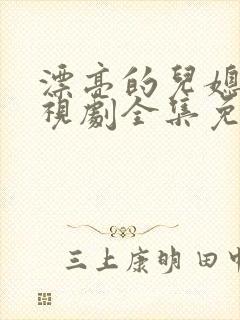 漂亮的兒媳
視劇全集免
三上康明 田中